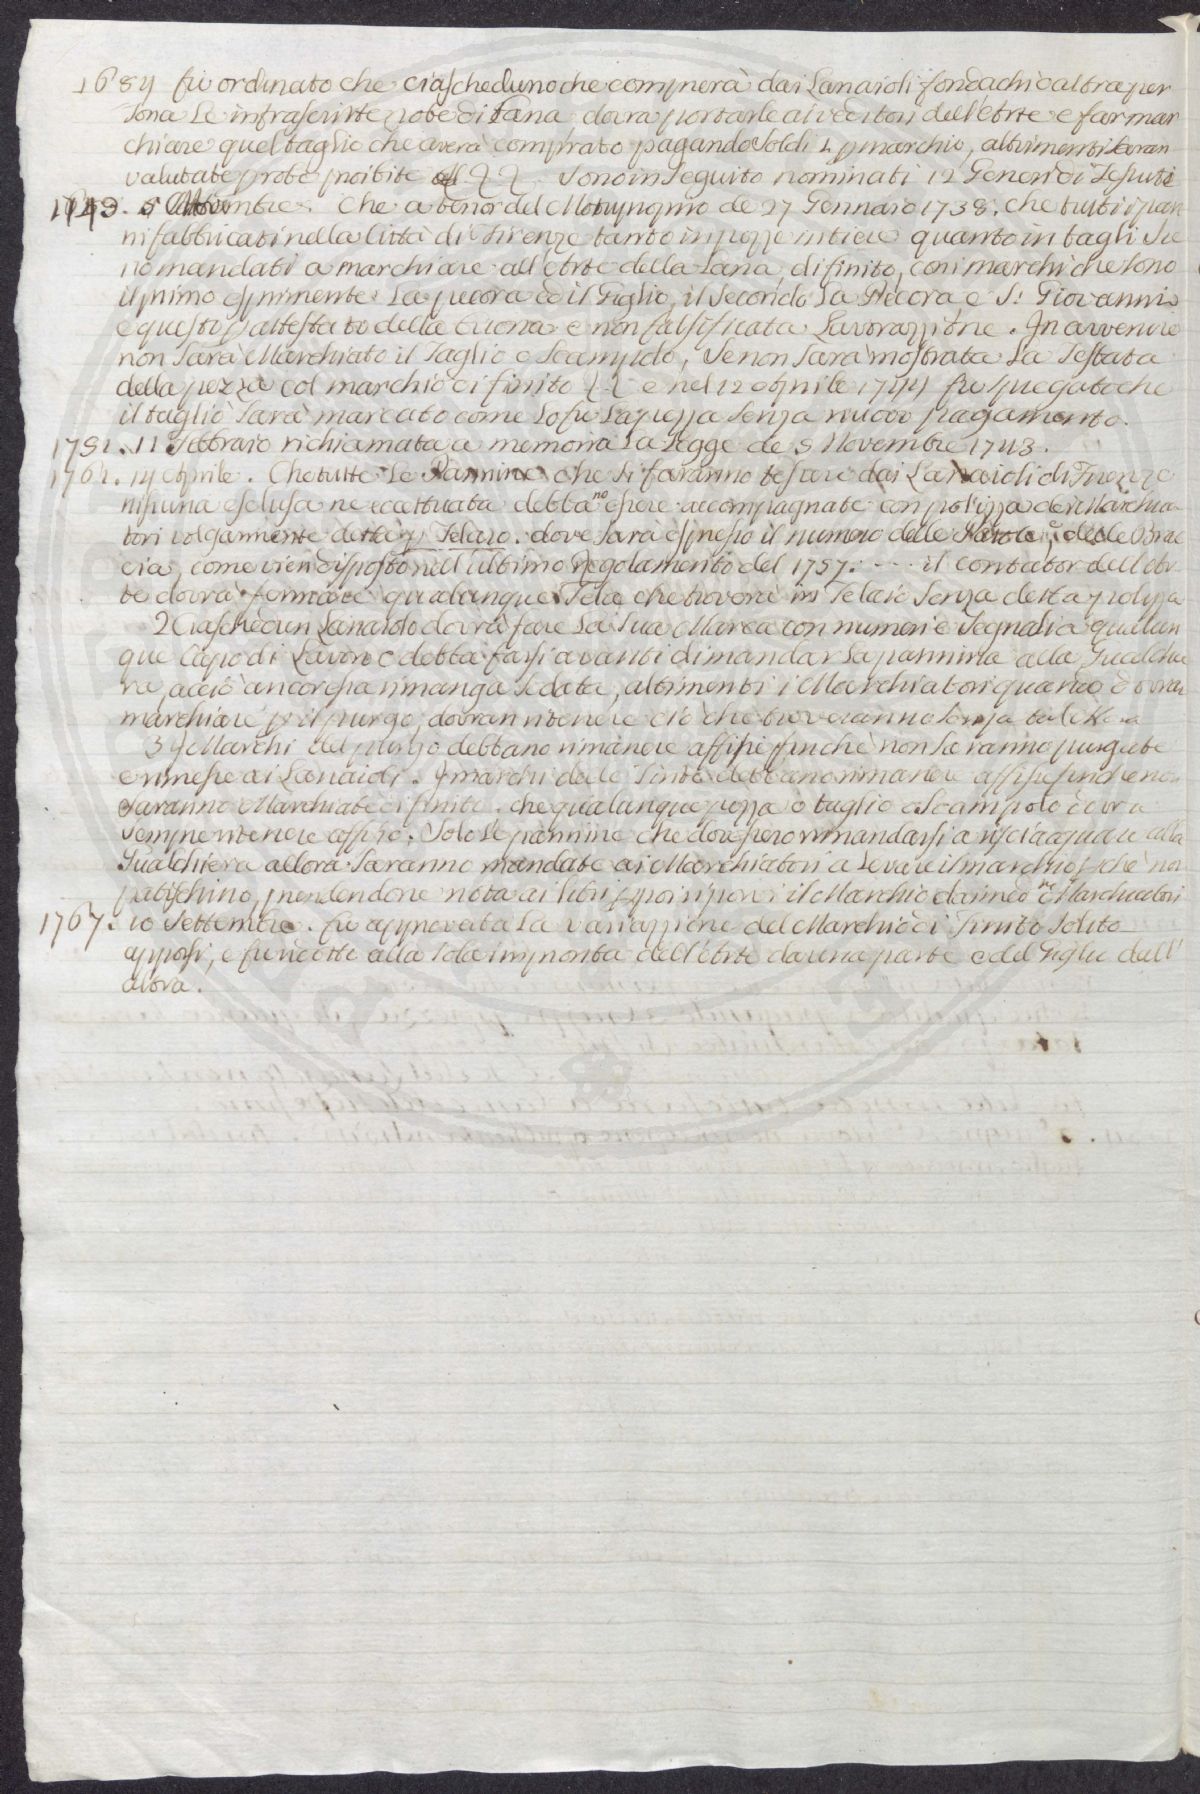 1684 fù ordinato che ciascheduno che comprerà dai Lanaioli fondachi o altra per
sona Le infrascritte robe di Lana dovrà portarle ai veditori dell'Arte e far mar
chiare quel taglio che averà comprato pagando Soldi 2 p marchio, altrimenti saran
valutate p robe proibite Sono in Seguito nominati 12 Generi di Tessuti
1743. 5 Novembre. Che a tenor del Motuproprio de 27 Gennaio 1738. che tutti i pan
ni fabbricati nella Città di Firenze tanto in pezze intiere quanto in tagli Sie
no mandati a marchiare all'Arte della Lana, di finito, con i marchi che sono
il primo esprimente La pecora ed il Giglio, il Secondo La Pecora e S. Giovanni
e questo p attestato della buona e non falsificata Lavorazzione. In avvenire
non Sarà Marchiato il Taglio o Scampolo, Se non Sarà mostrata La Testata
della pezza col marchio di finito e nel 12 Aprile 1744 fu spiegato che
il taglio Sarà marcato come Lo fu La pezza Senza nuovo pagamento.
1751. 11 Febbraio richiamata a memoria La Legge de 5 Novembre 1743.
1761. 14 Aprile. Che tutte Le Pannine che si faranno tessere dai Lanaioli di Firenze
nissuna esclusa ne eccettuata debbano essere accompagnate con polizza dei Marchia
tori volgarmente detta p Telaio. dove Sarà espresso il numero delle Paiole, e delle Brac
cia, come vien disposto nell'ultimo Regolamento del 1757. - - - il contator dell'Ar
te dovrà fermare qualunque Tela che troverà in Telaio Senza detta polizza
2 Ciaschedun Lanaiolo dovrà fare La Sua Marca con numeri e Segnali a qualun
que Capo di Lavoro e debba farsi avanti di mandar La pannina alla Gualchie
ra, acciò ancor essa rimanga Sodata, altrimenti i Marchiatori quando dovran
marchiare p il purgo, dovran ritenere ciò che troveranno Senza tale
3 I Marchi del purgo debbano rimanere affissi finchè non Saranno purgate
e rimesse ai Lanaioli. I marchi delle Tinte debbano rimanere affissi finchè non
Saranno Marchiate di finito. che qualunque pezza o taglio o Scampolo dovrà
Sempre ritenere affisso. Solo Le pannine che dovessero rimandarsi a risciacquare alla
Gualchiera allora Saranno mandate ai Marchiatori a Levare il marchio p chè non
patischino, prendendone nota ai libri p poi riporvi il Marchio Marchiatori
1767. 10 Settembre. fù approvata La variazzione del Marchio di Finito Solito
apporsi, e fu ridotto alla Sola impronta dell'Arte da una parte e del Giglio dall'
altra.